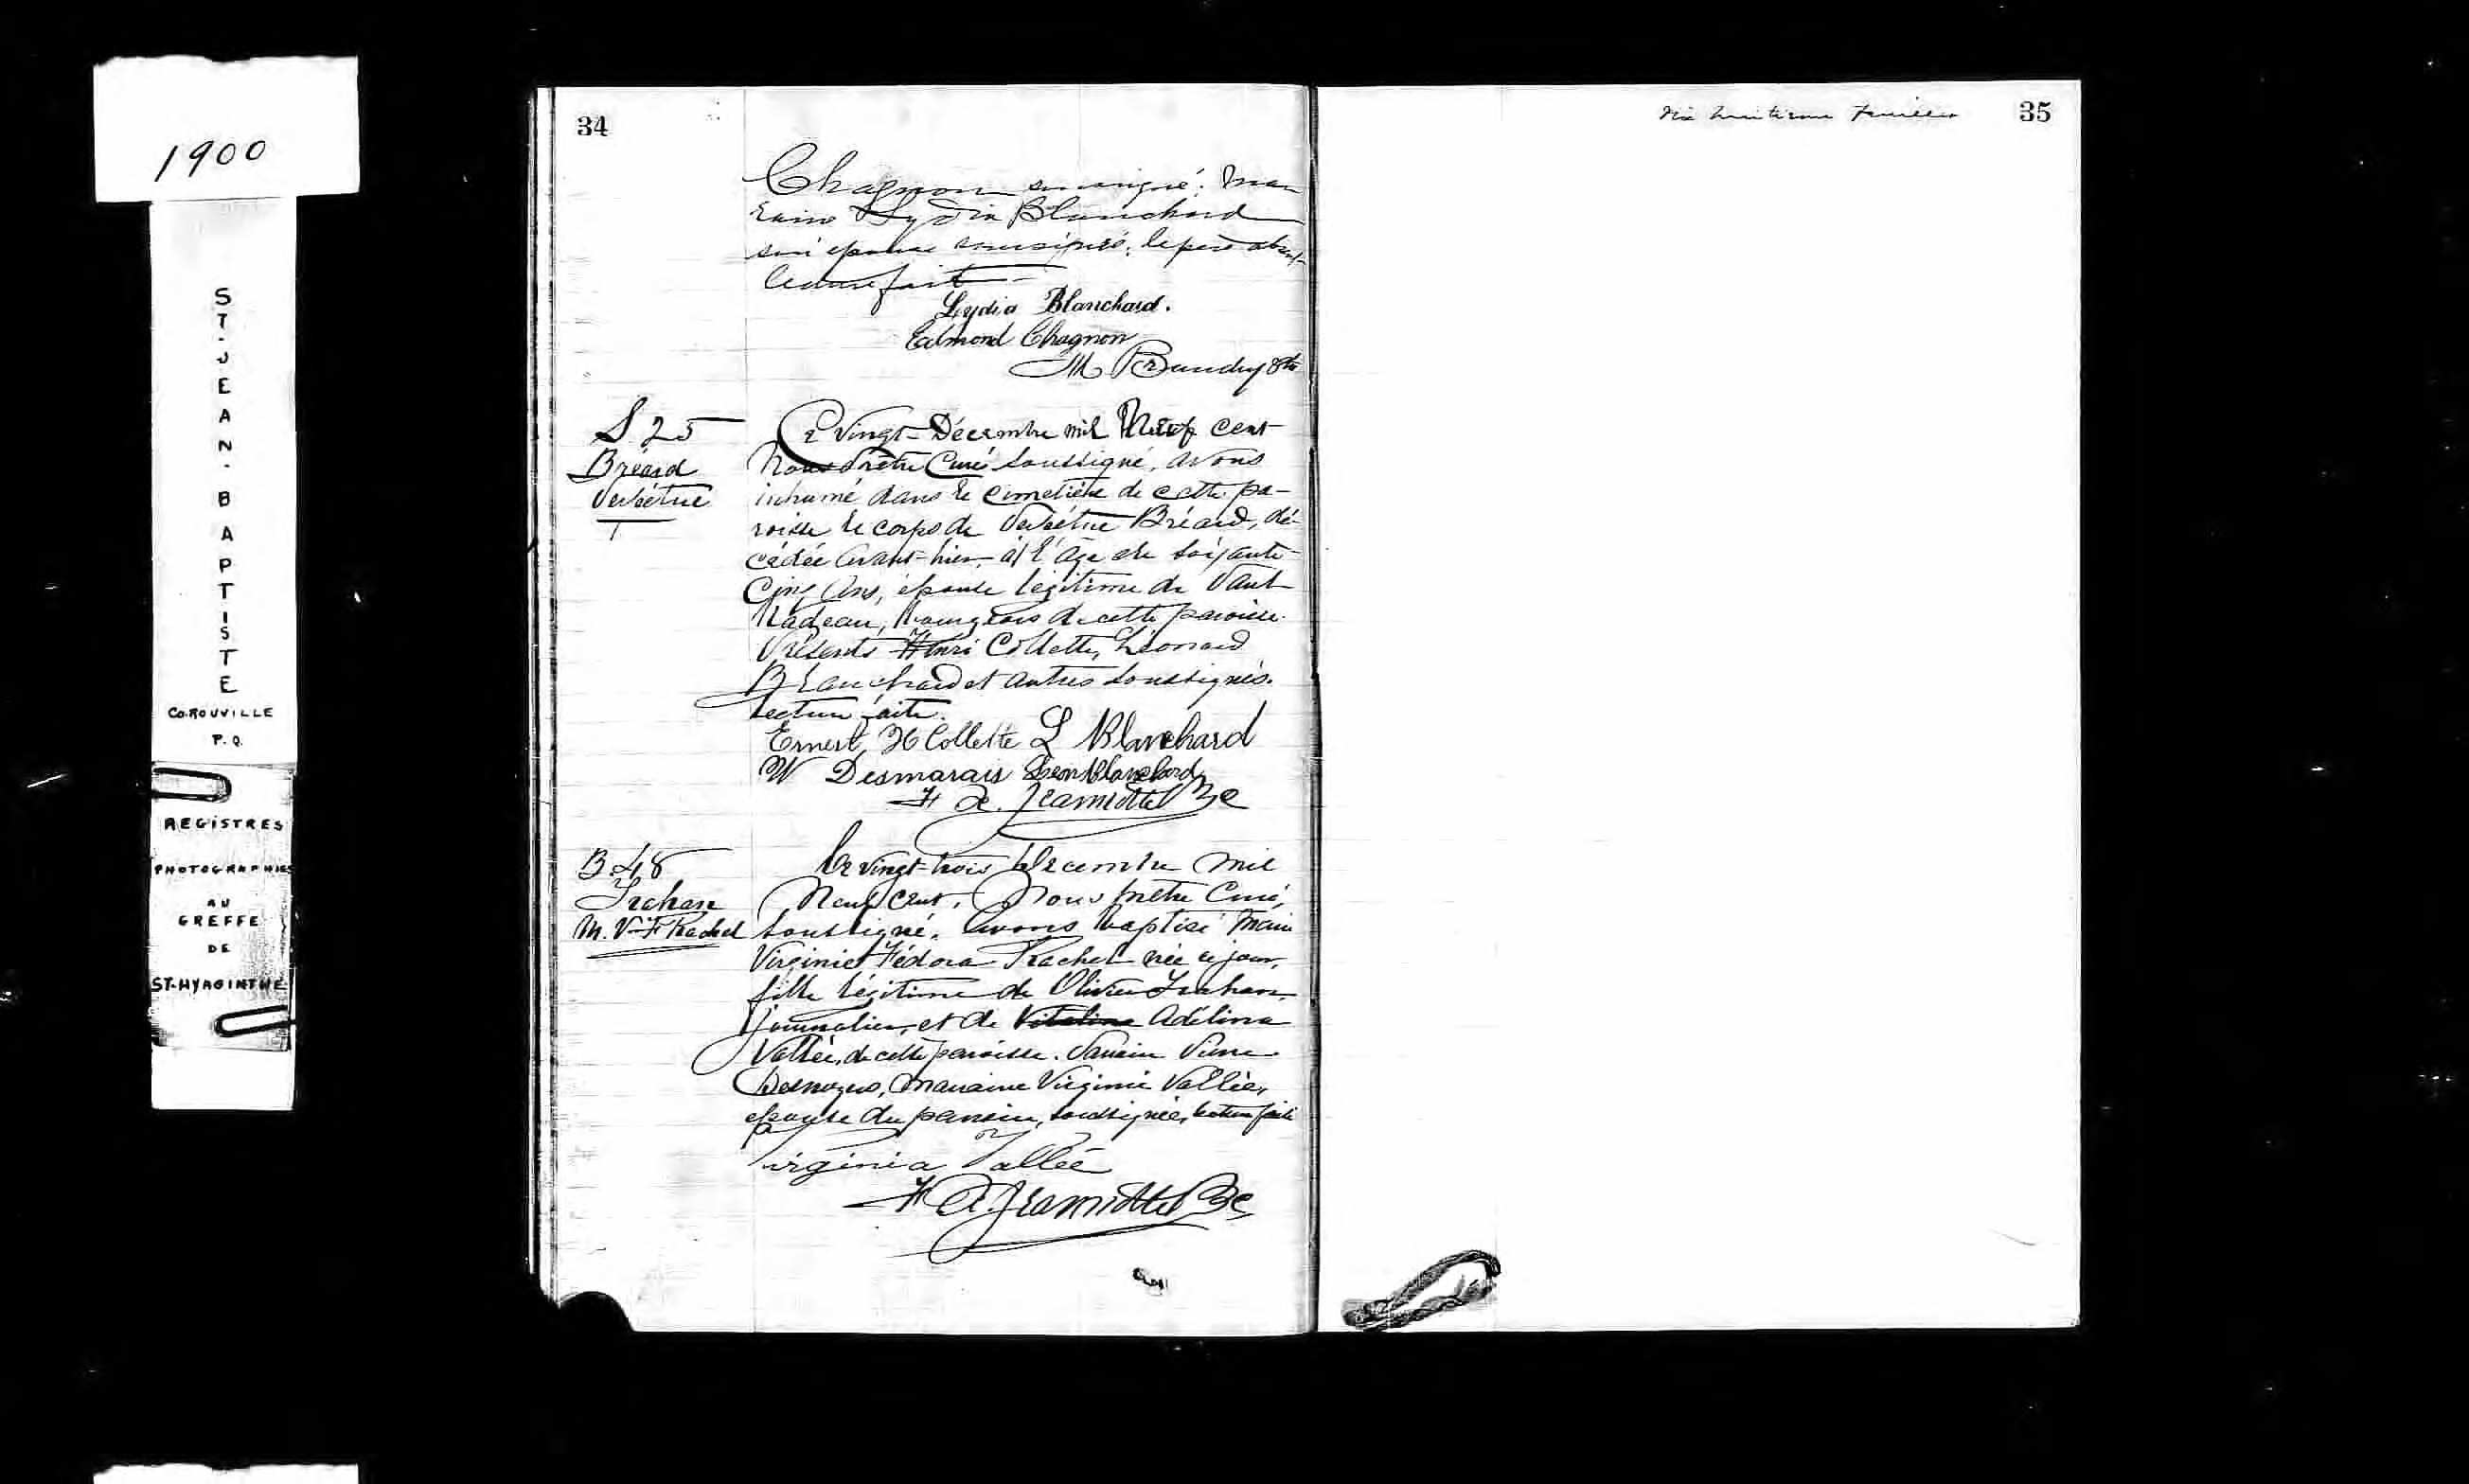 1900
ST-JEAN-BAPTISTE
Co. ROUVILLE
P. Q.
REGISTRES
PHOTOGRAPHIES
AU
GREFFE
DE
ST-HYACINTHE
34
Chagnon soussigné; mar
raine Lydia Blanchard
son épouse soussignés; le père absent
Lecture faite
Lydia Blanchard.
Edmond Chagnon
M Beaudry Ptre
S 25
Bréard
Ce vingt Décembre mil Neuf cent
Nous Prêtre Curé soussigné, avons
inhumé dans le cimetière de cette pa-
roisse le corps de Bréard, dé-
cédée avant-hier, à l'âge de soixante-
Cinq Ans, épouse légitime de Paul
Nadeau, bourgeois de cette paroisse.
Présents Henri Collette, Léonard
Blanchard et autres soussignés.
Lecture faite.
Ernest H Collette L Blanchard
W Desmarais Léon Blanchard
F X. Jeannotte
B. 48
Trahan
M. V. F Rachel
Ce vingt-trois Décembre mil
Neuf cent, Nous Prêtre Curé,
soussigné, avons baptisé Marie
Virginie Fédora Rachel née ce jour,
fille légitime de Olivier Trahan,
journalier, et de Vitaline Adélina
Vallée, de cette paroisse. Parrain
Desnoyers, marraine Virginie Vallée,
épouse du parrain, soussignée, lecture faite
Virginia Vallée
F X. Jeannotte
35